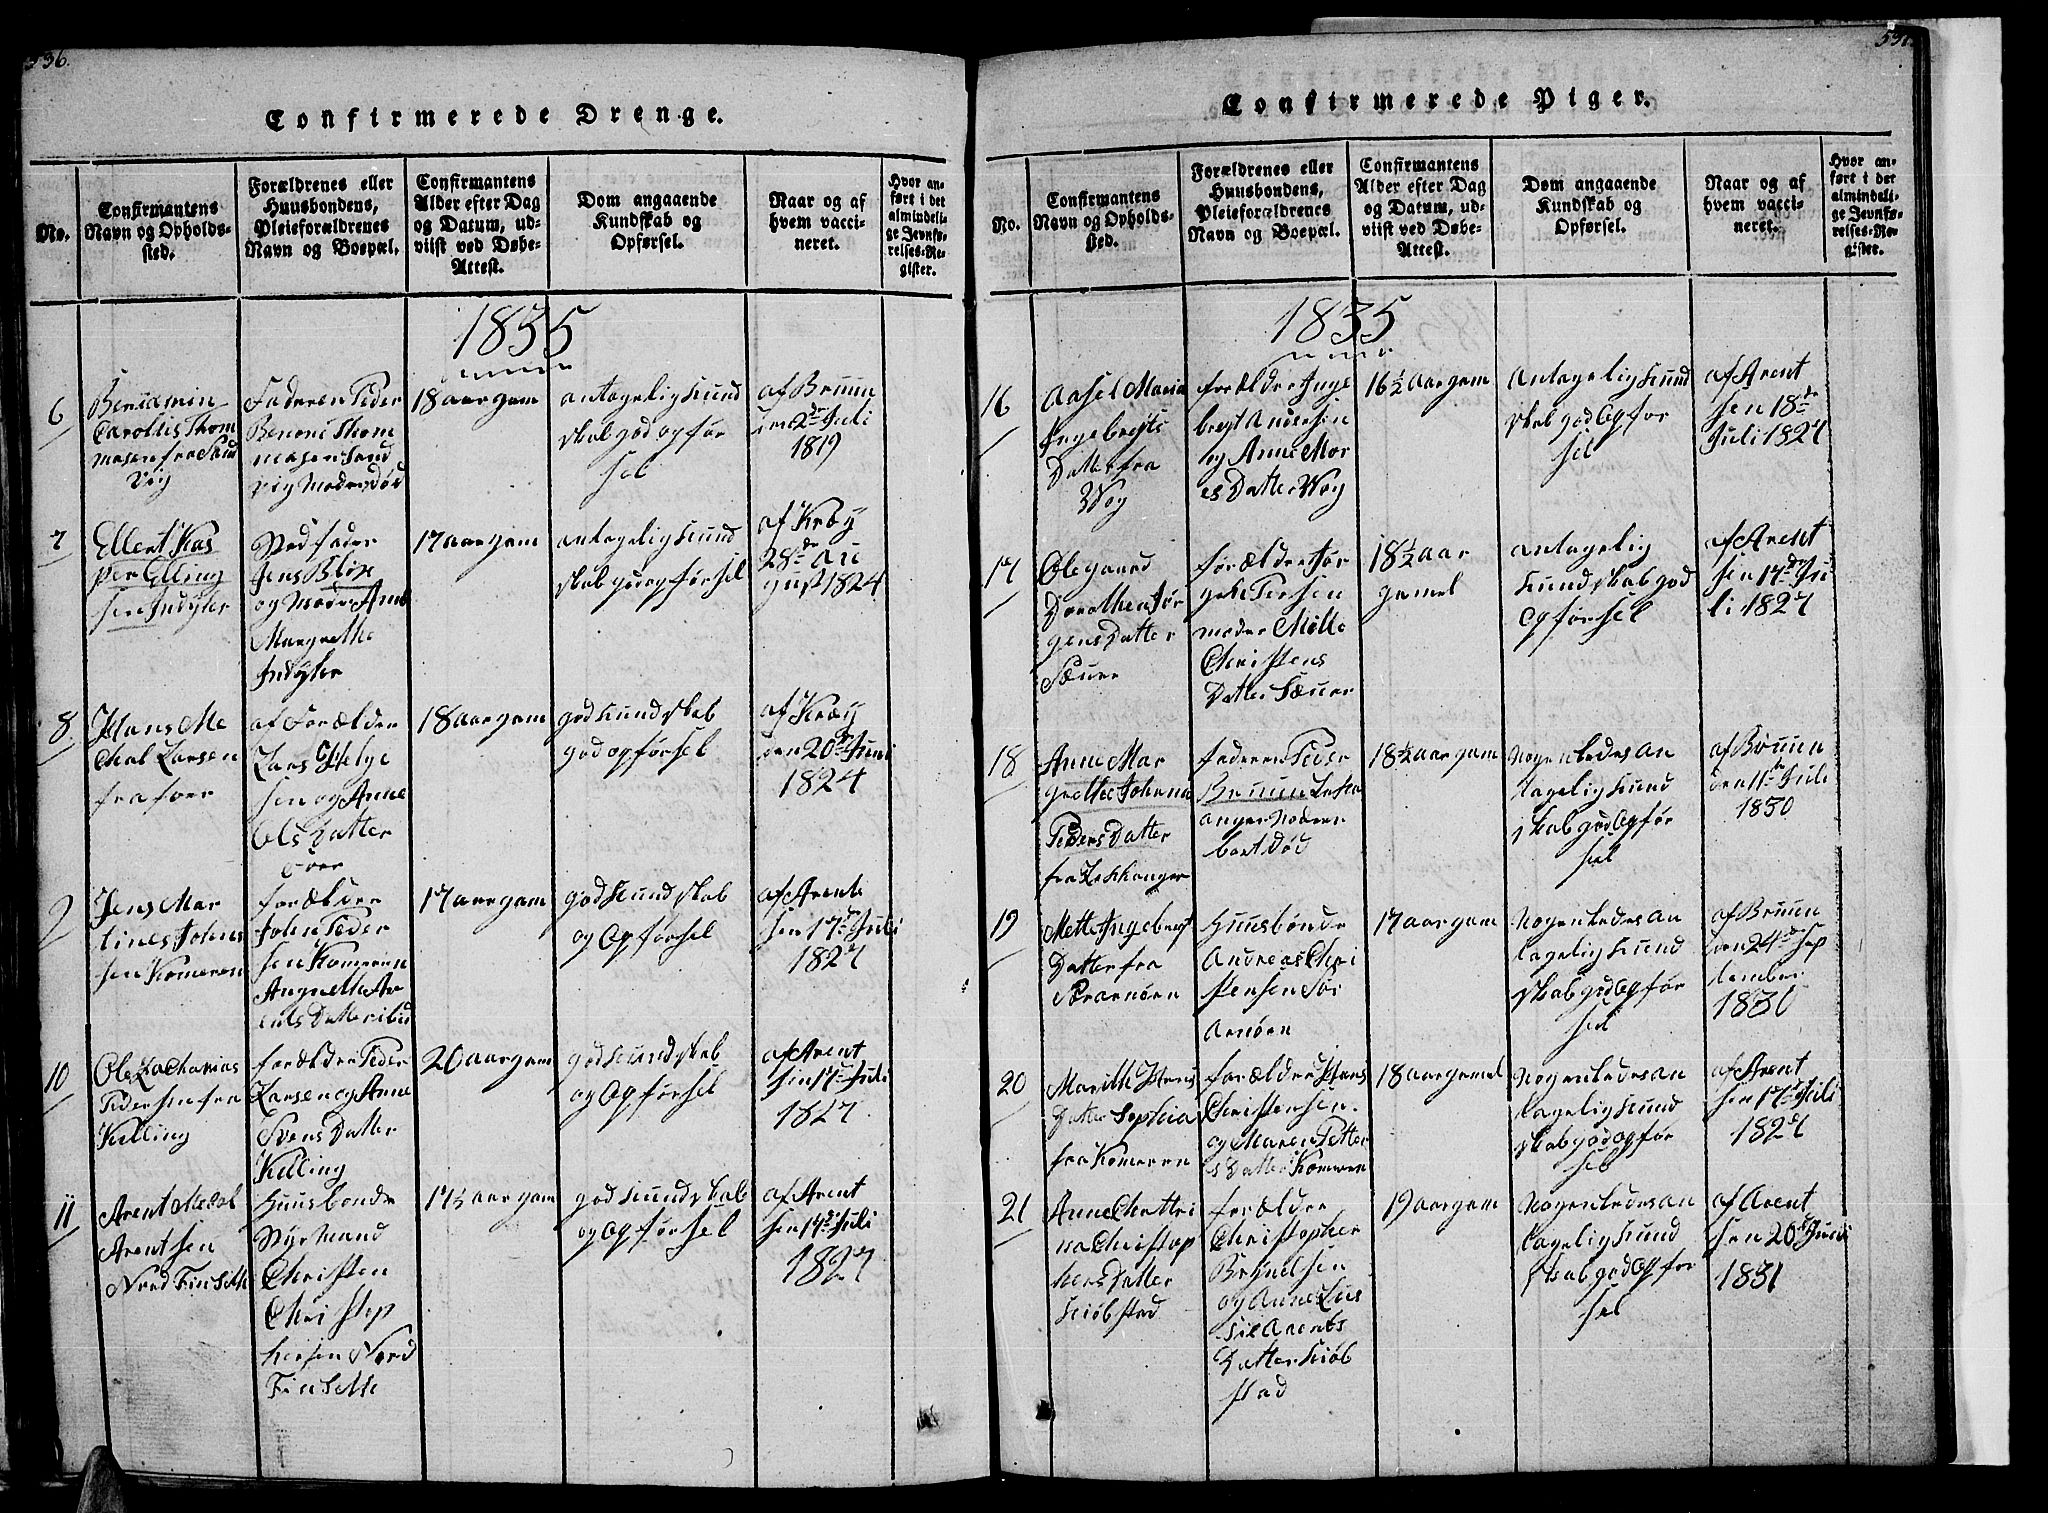 536.
Confirmerede Drenge.
No.
Confirmantens
Navn og Opholds-
sted.
Forældrenes eller
Huusbondens,
Pleieforældrenes
Navn og Boepæl.
Confirmantens
Alder efter Dag
og Datum, ud-
viist ved Døbe-
Attest.
Dom angaaende
Kundskab og
Opførsel.
Naar og af
hvem vacci-
neret.
Hvor an-
ført i det
almindeli-
ge Jevnfø-
relses-Re-
gister.
1835
6
Benjamin
Carolus Thom
masen fra Sand
vig
Faderen Peder
Benoni Thom
masen Sand
vig Moder død
18 aar gam
antagelig Kund
skab god opfør
sel
af Bruun
den 2den Juli
1819
7
Ellert Kas
per Elling
sen Indyhr
Sted fader
Jens Blix
og Moder Anne
Margrethe
Indyhr
17 aar gam
antagelig Kund
skab god opførsel
af Kræy
28de Au
gust 1824
8
Hans Me
chal Larsen
fra foer
af Forælder
Lars Helge
sen og Anne
Ols Datter
foer
18 aar gam
god Kundskab
god opførsel
af Kræy
den 20de Juni
1824
9
Jens Mar
tines Johns
sen Komeren
forælder
John Peder
sen Komeren
Angnethe Ar
ents Datter ibid
17 aar gam
god Kundskab
og Opførsel
af Arent
sen 17de Juli
1827
10
Ole Zacharias
Pedersen fra
Kelling
forælder Peder
Larsen og Anne
Svens Datter
Kelling
20 aar gam
god Kundskab
og Opførsel
af Arent
sen 17de Juli
1827
11
Arent
Arentsen
Nord Finsethe
Huusbonde
Styrmand
Christen
Christop
hersen Nord
Finsethe
17½ aar gam
god Kundskab
og Opførsel
af Arent
sen 17de Juli
1827
537
Confirmerede Piger.
No.
Confirmantens
Navn og Opholds-
sted.
Forældrenes eller
Huusbondens,
Pleieforældrenes
Navn og Boepæl.
Confirmantens
Alder efter Dag
og Datum, ud-
viist ved Døbe-
Attest.
Dom angaaende
Kundskab og
Opførsel.
Naar og af
hvem vacci-
neret.
Hvor an-
ført i det
almindeli-
ge Jevnfø-
relses-Re-
gister.
1835
16
Aasel Maria
Ingebregts
Datter fra
Wog
forælder Inge
bregt Andersen
og Anne Mor
es Datter Wog
16½ aar gam
Antagelig Kund
skab god Opfør
sel
af Arent
sen 18de
Juli 1827
17
Olegaard
Dorothea Jør
gens Datter
Sæuer
forælder Jør
gen Persen
moder Mølle
Christens
Datter Sæuer
18½ aar
gamel
antagelig
Kundskab god
Opførsel
af Arent
sen 17de Ju
li 1827
18
Anne Mar
grethe Johana
Peders Datter
fra Leskhanger
faderen Peder
Bruun Leskh
anger Moderen
bort død
18½ aar gam
Nogenledes an
tagelig Kund
skab god Opfør
sel
af Bruun
den 11te Juli
1830
19
Mette Ingebregt
Datter fra
Sørarnøen
Huusbonde
Andreas Chri
stensen Sør
Arnøen
17 aar gam
Nogenledes an
tagelig Kund
skab god Opfør
sel
af Bruun
den 24de Sep
tember
1830
20
Marith Hans
Datter Sophia
fra Komeren
forælder Hans
Christensen
og Maren Petter
s Datter Komeren
18 aar gamel
Nogenledes an
tagelig Kund
skab god Opfør
sel
af Arent
sen 17de Juli
1827
21
Anne Chattri
na Christop
hers Datter
Kiøbstad
forælder
Christopher
Bryndelsen
og Anne
Arents
Datter Kiøb
stad
19 aar gam
Nogenledes an
tagelig Kund
skab god Opfør
sel
af Arent
sen 20de Juni
1831